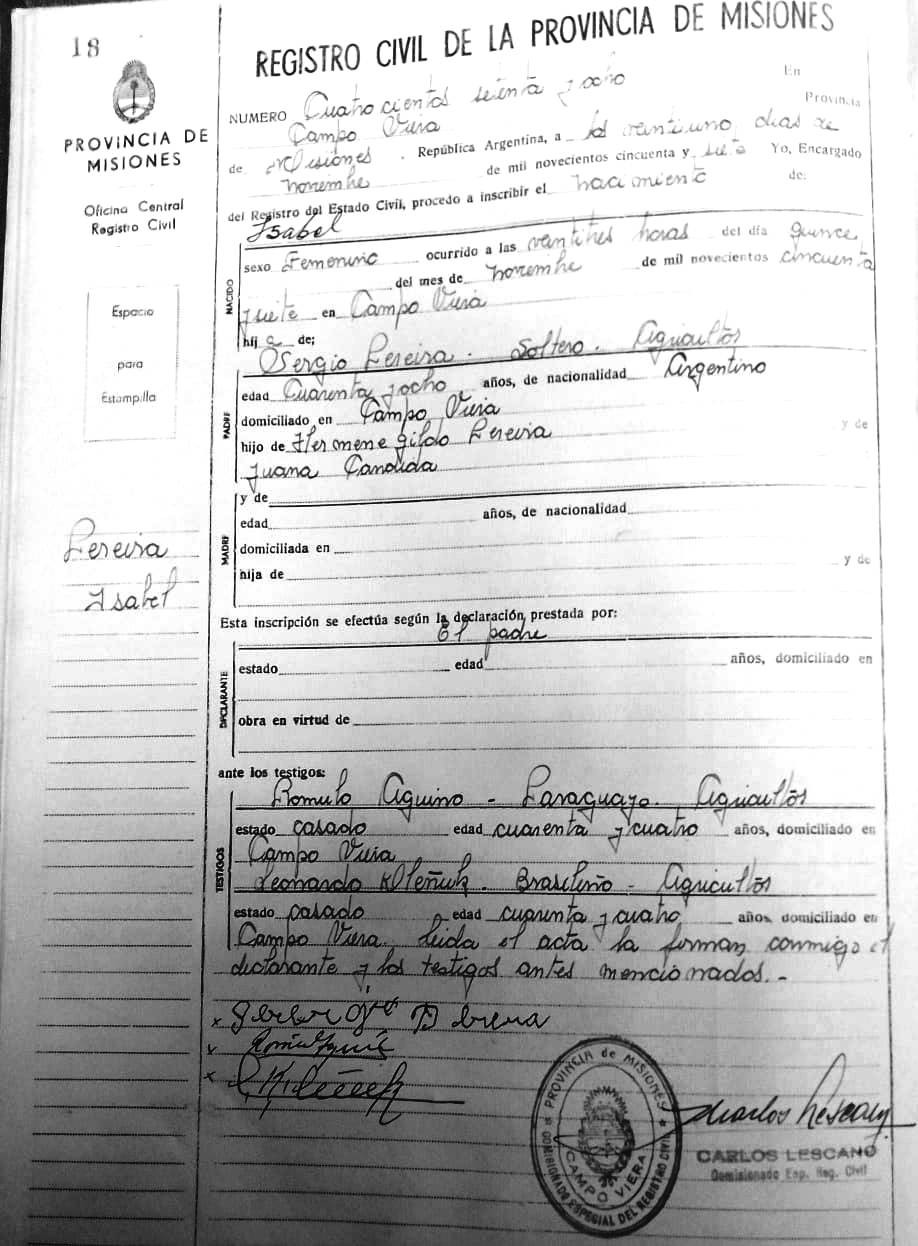 18
PROVINCIA DE
MISIONES
Oficina Central
Registro Civil
Espacio
para
Estampilla
Pereira
Isabel
REGISTRO CIVIL DE LA PROVINCIA DE MISIONES
NUMERO Cuatrocientos setenta y ocho En
Campo Viera Provincia
de Misiones . República Argentina, a los veintiuno dias de
noviembre de mil novecientos cincuenta y siete Yo, Encargado
del Registro del Estado Civil, procedo a inscribir el nacimiento de:
Isabel
NACIDO
sexo Femenino ocurrido a las veintitres horas del día quince
del mes de noviembre de mil novecientos cincuenta
y siete en Campo Viera
hij a de;
Sergio Pereira - Soltero - Agricultor
PADRE
edad Cuarenta y ocho años, de nacionalidad Argentino
domiciliado en Campo Viera
hijo de Hermenegildo Pereira y de
Juana Candida
MADRE
y de
edad años, de nacionalidad
domiciliada en
hija de y de
Esta inscripción se efectúa según la declaración prestada por:
El padre
DECLARANTE
estado edad años, domiciliado en
obra en virtud de
ante los testigos:
TESTIGOS
Romulo Aquino - Paraguayo - Agricultor
estado casado edad cuarenta y cuatro años, domiciliado en
Campo Viera
Leonardo - Brasileño - Agricultor
estado casado edad cuarenta y cuatro años, domiciliado en
Campo Viera. Leida el acta la firman, conmigo el
declarante y los testigos antes mencionados.-
PROVINCIA de MISIONES
COMISIONADO ESPECIAL DEL REGISTRO CIVIL
CAMPO VIERA
Carlos Lescano
CARLOS LESCANO
Comisionado Esp. Reg. Civil